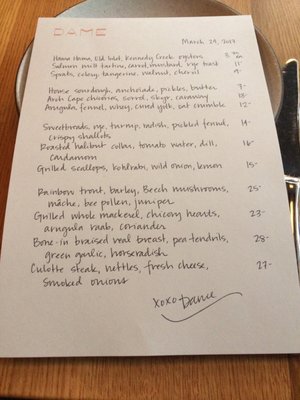 DAME
March 29, 2017
Hama Hama, Eld Inlet, Kennedy Creek oysters 3
Salmon milt tartine, carrot, mustard, rye toast 11-
Sprats, celery, tangerine, walnut, chervil 9-
House sourdough, anchoiade, pickles, butter 7-
Arch Cape chicories, sorrel, skyr, caraway 13-
Arugula, fennel, whey, cured yolk, oat crumble 12-
Sweetbreads, rye, turnip, radish, pickled fennel, 14-
crispy shallots
Roasted halibut collar, tomato water, dill, 16-
cardamom
Grilled scallops, kohlrabi, wild onion, lemon 15-
Rainbow trout, barley, Beech mushrooms, 25-
mâche, bee pollen, juniper
Grilled whole mackerel, chicory hearts, 23-
arugula raab, coriander
Bone-in braised veal breast, pea tendrils, 28-
green garlic, horseradish
Culotte steak, nettles, fresh cheese, 27-
smoked onions
xoxo Dame